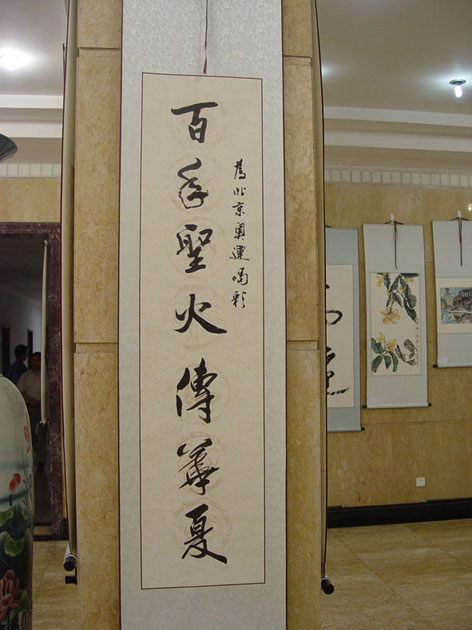 為北京奥運喝彩
百年聖火傳華夏